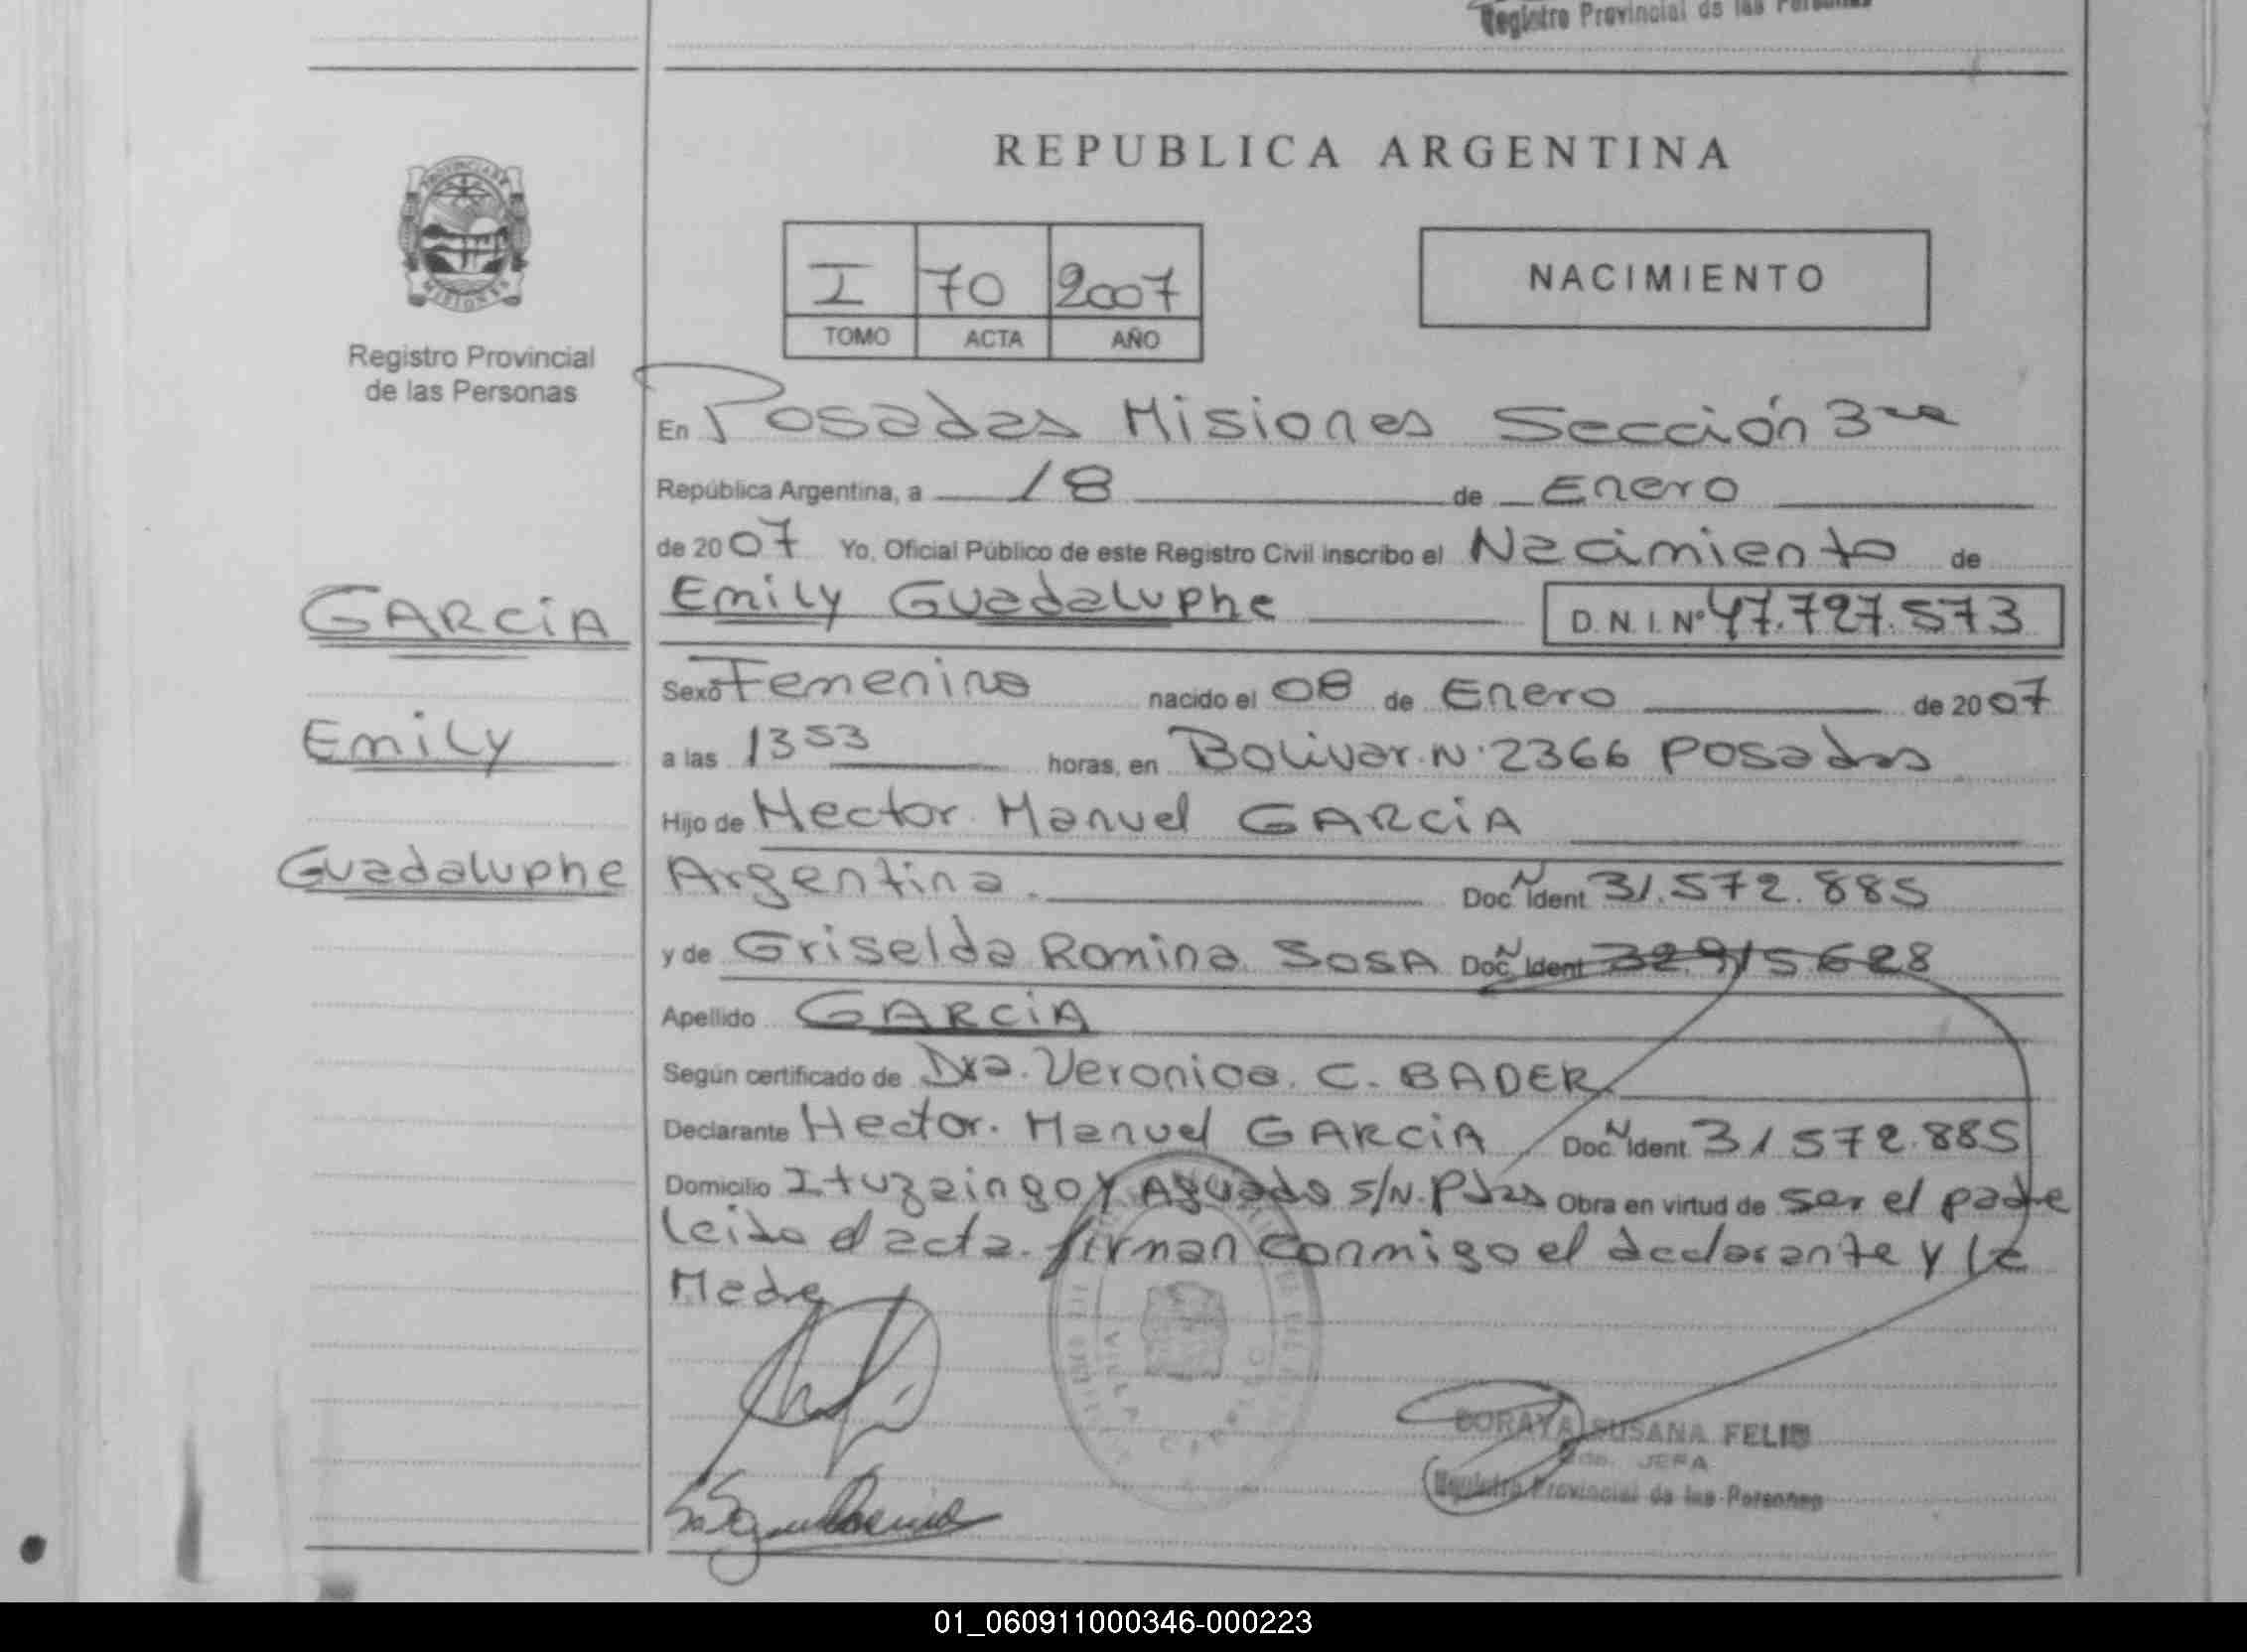 Registro Provincial de las Personas
REPUBLICA ARGENTINA
PROVINCIA DE
MISIONES
I 70 2007
TOMO ACTA AÑO
NACIMIENTO
Registro Provincial
de las Personas
En Posadas Misiones Sección 3ra
República Argentina, a 18 de Enero
de 2007 Yo, Oficial Público de este Registro Civil inscribo el Nacimiento de
GARCIA
Emily Guadaluphe D.N.I. Nº 47.727.573
Sexo Femenino nacido el 08 de Enero de 2007
Emily
a las 1353 horas, en Bolivar N. 2366 Posadas
Hijo de Hector Manuel GARCIA
Guadaluphe
Argentina. Doc. N Ident 31.572.885
y de Griselda Romina SOSA Doc. N Ident 32.915628
Apellido GARCIA
Según certificado de Dra. Veronica C. BADER
Declarante Hector Manuel GARCIA Doc. N Ident 31572.885
Domicilio Ituzaingo y Aguado S/N. Pdas Obra en virtud de ser el padre
leida el acta firman conmigo el declarante y la
Madre
SORAYA SUSANA FELIU
JEFA
Registro Provincial de las Personas
01_060911000346-000223